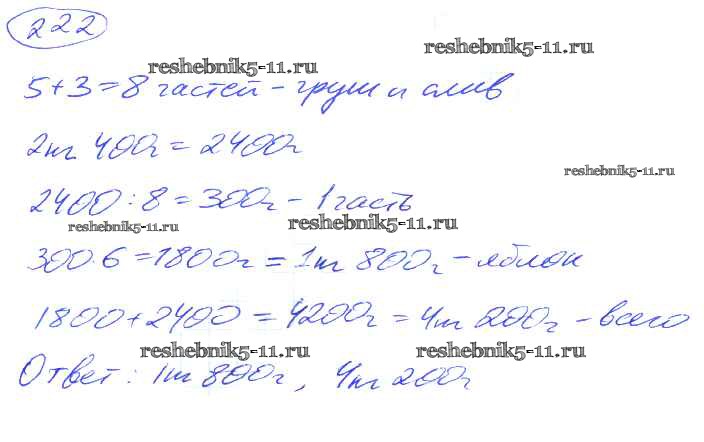 222
reshebnik5-11.ru
reshebnik5-11.ru
5+3=8 частей - груш и слив
2кг 400г = 2400г
reshebnik5-11.ru
2400:8=300г - 1 часть
reshebnik5-11.ru
reshebnik5-11.ru
300·6=1800г = 1кг 800г - яблок
1800+2400 = 4200г = 4кг 200г - всего
reshebnik5-11.ru
reshebnik5-11.ru
Ответ: 1кг 800г, 4кг 200г